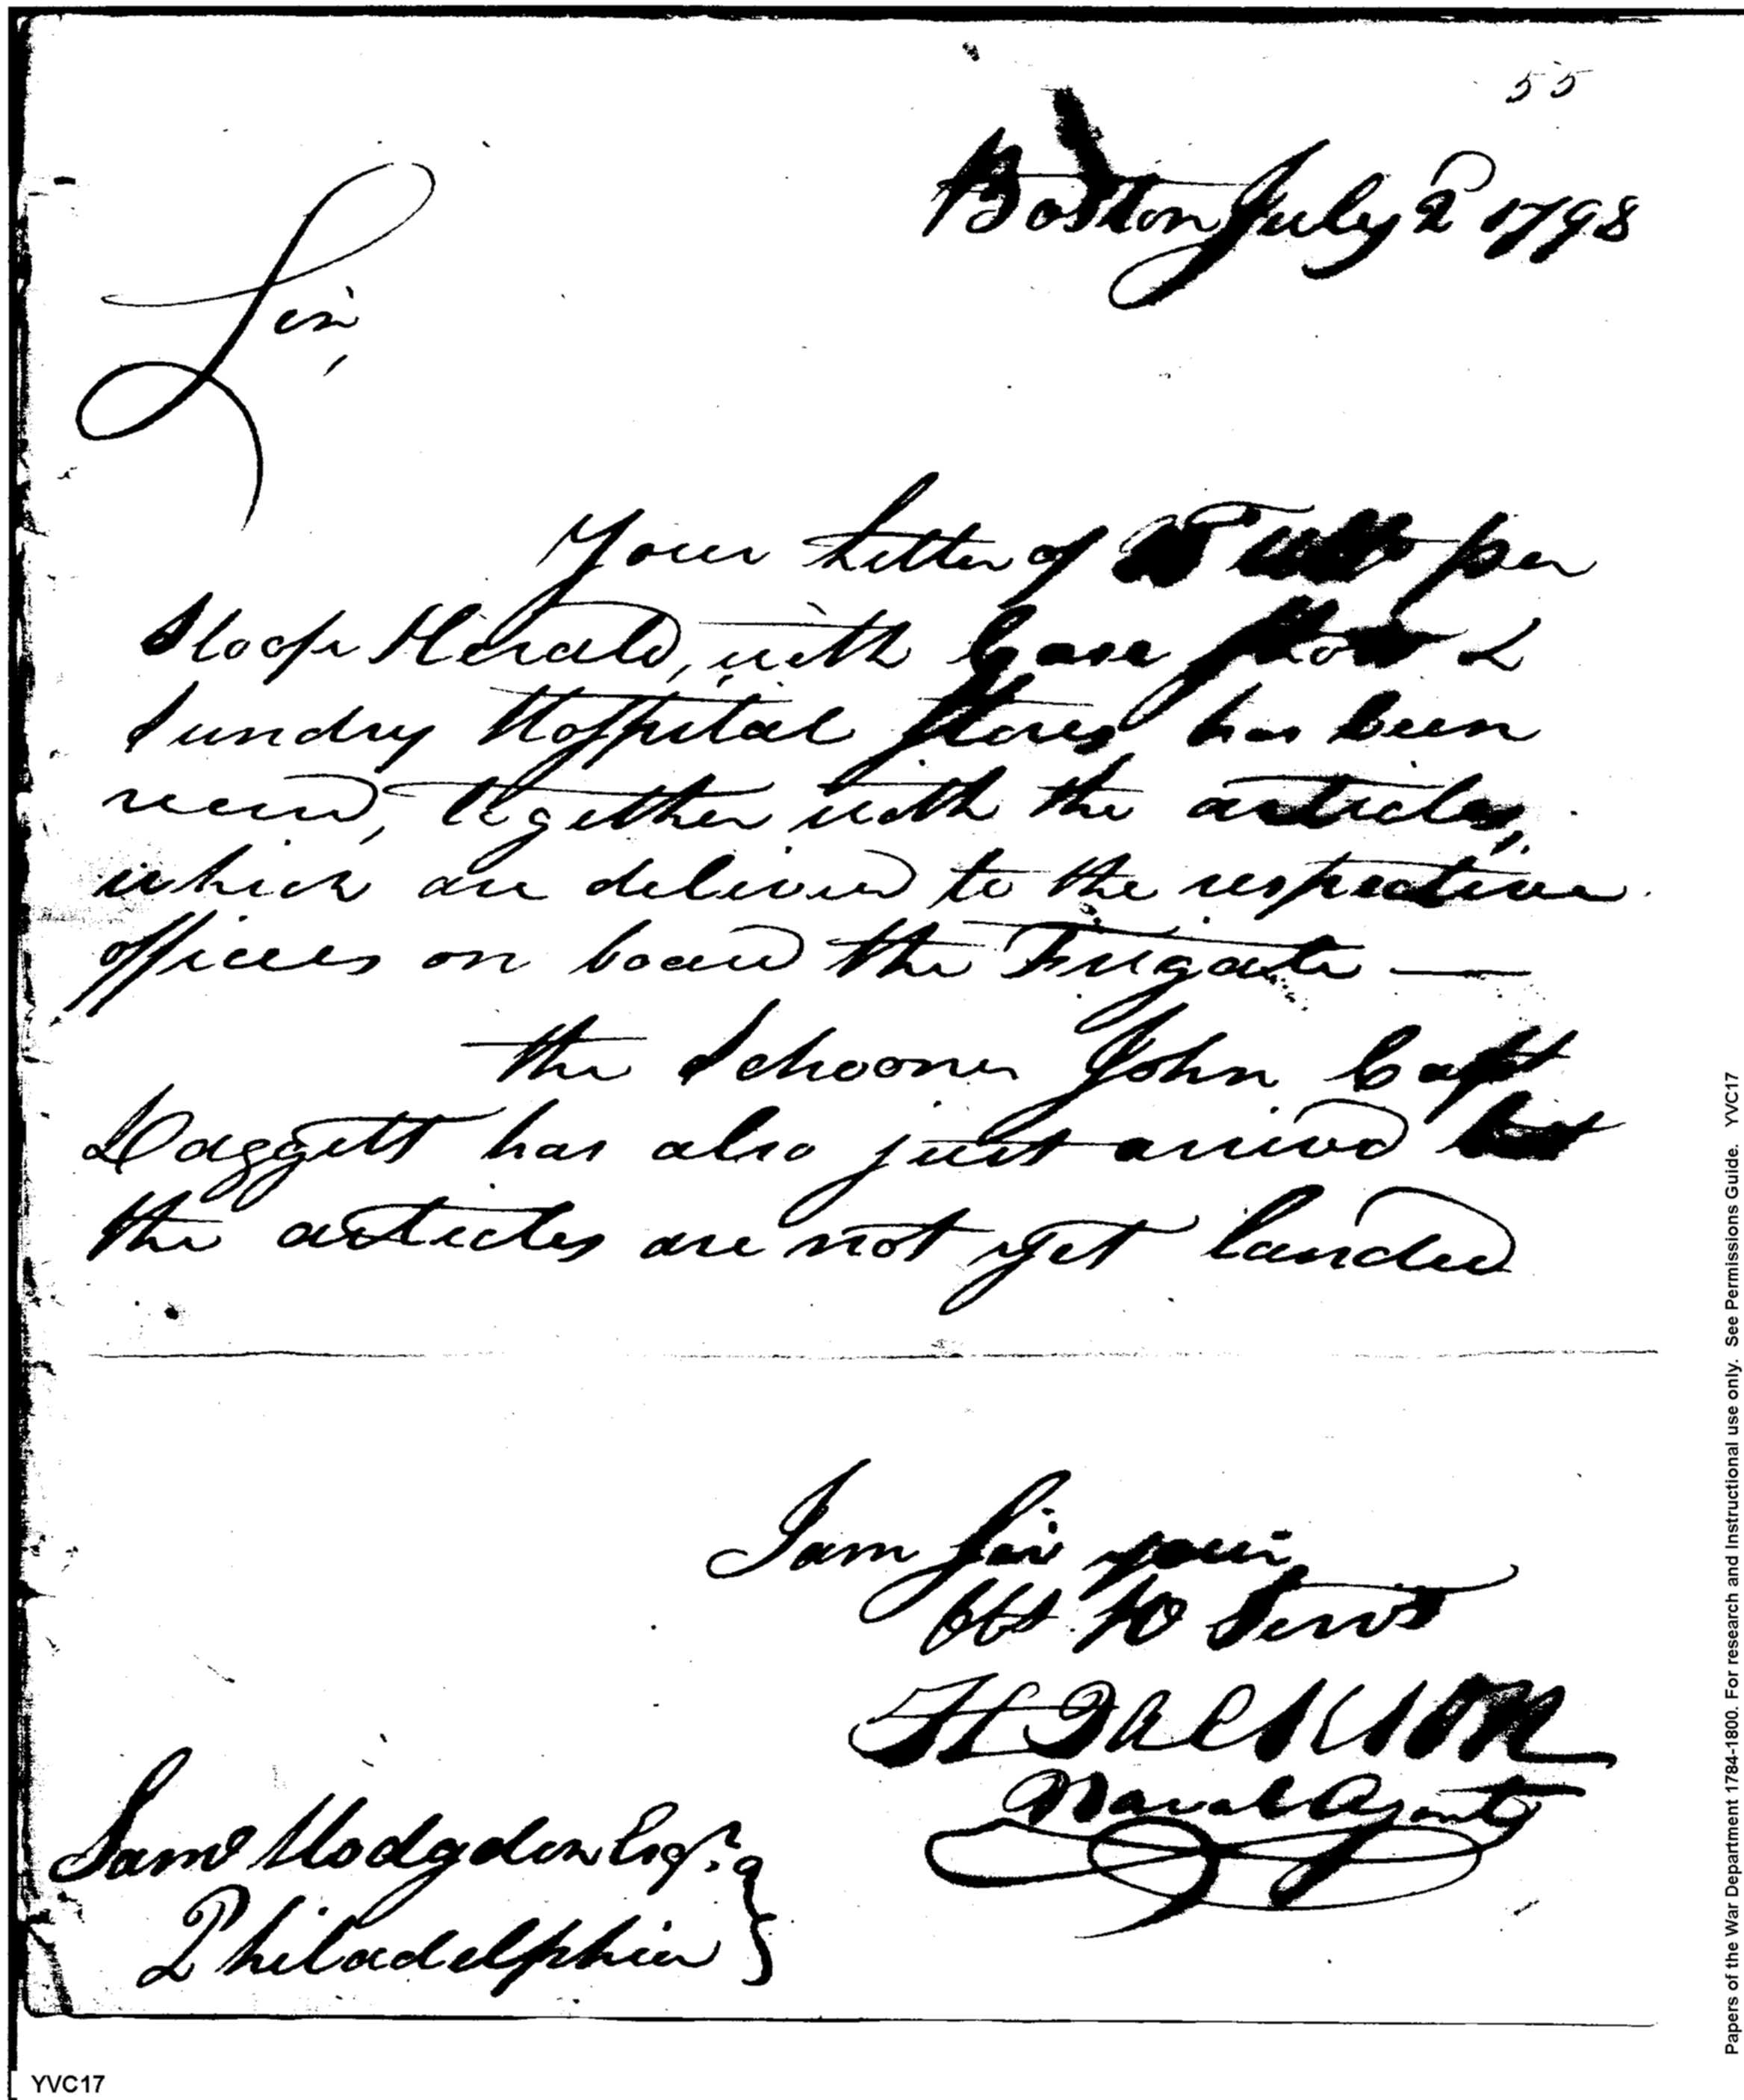 55
Boston July 2d 1798
Sir,
Your Letter of ulto per
Sloop Herald, with Case shot &
Sundry Hospital stores has been
recievd, together with the articles,
which are deliverd to the respective
officers on board the Frigate —
the Schooner John Capt
Daggett has also just arrivd but
the articles are not yet landed
I am Sir your
Obt Hb Servt
H Jackson
Naval Agent
Saml Hodgdon Esqr.
Philadelphia
Papers of the War Department 1784-1800. For research and Instructional use only. See Permissions Guide. YVC17
YVC17